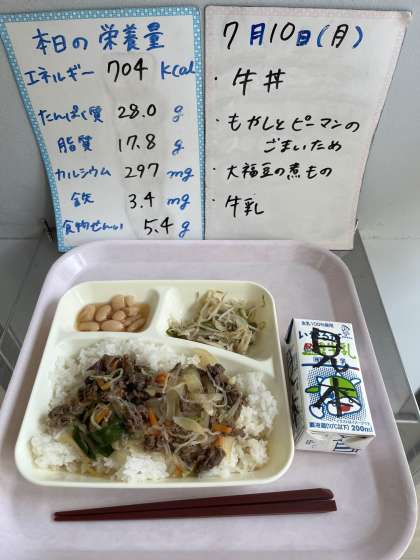 本日の栄養量
エネルギー 704 kcal
たんぱく質 28.0 g
脂質 17.8 g
カルシウム 297 mg
鉄 3.4 mg
食物せんい 5.4 g
7月10日(月)
・牛丼
・もやしとピーマンの
ごまいため
・大福豆の煮もの
・牛乳
生乳100%使用
乳
見本
200ml